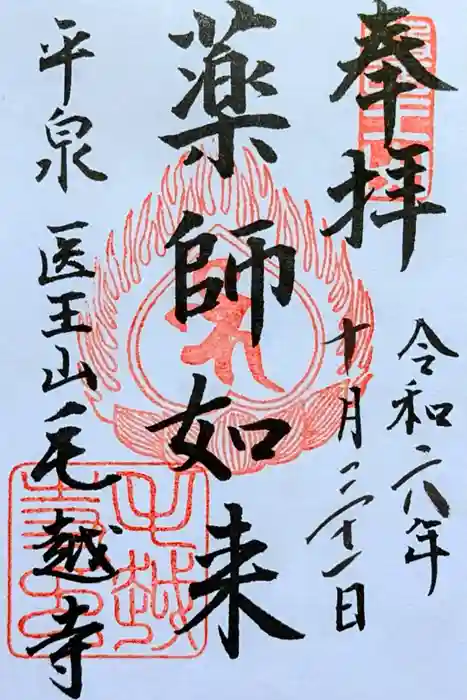 奉拝
令和六年
十月二十一日
薬師如来
平泉 医王山毛越寺